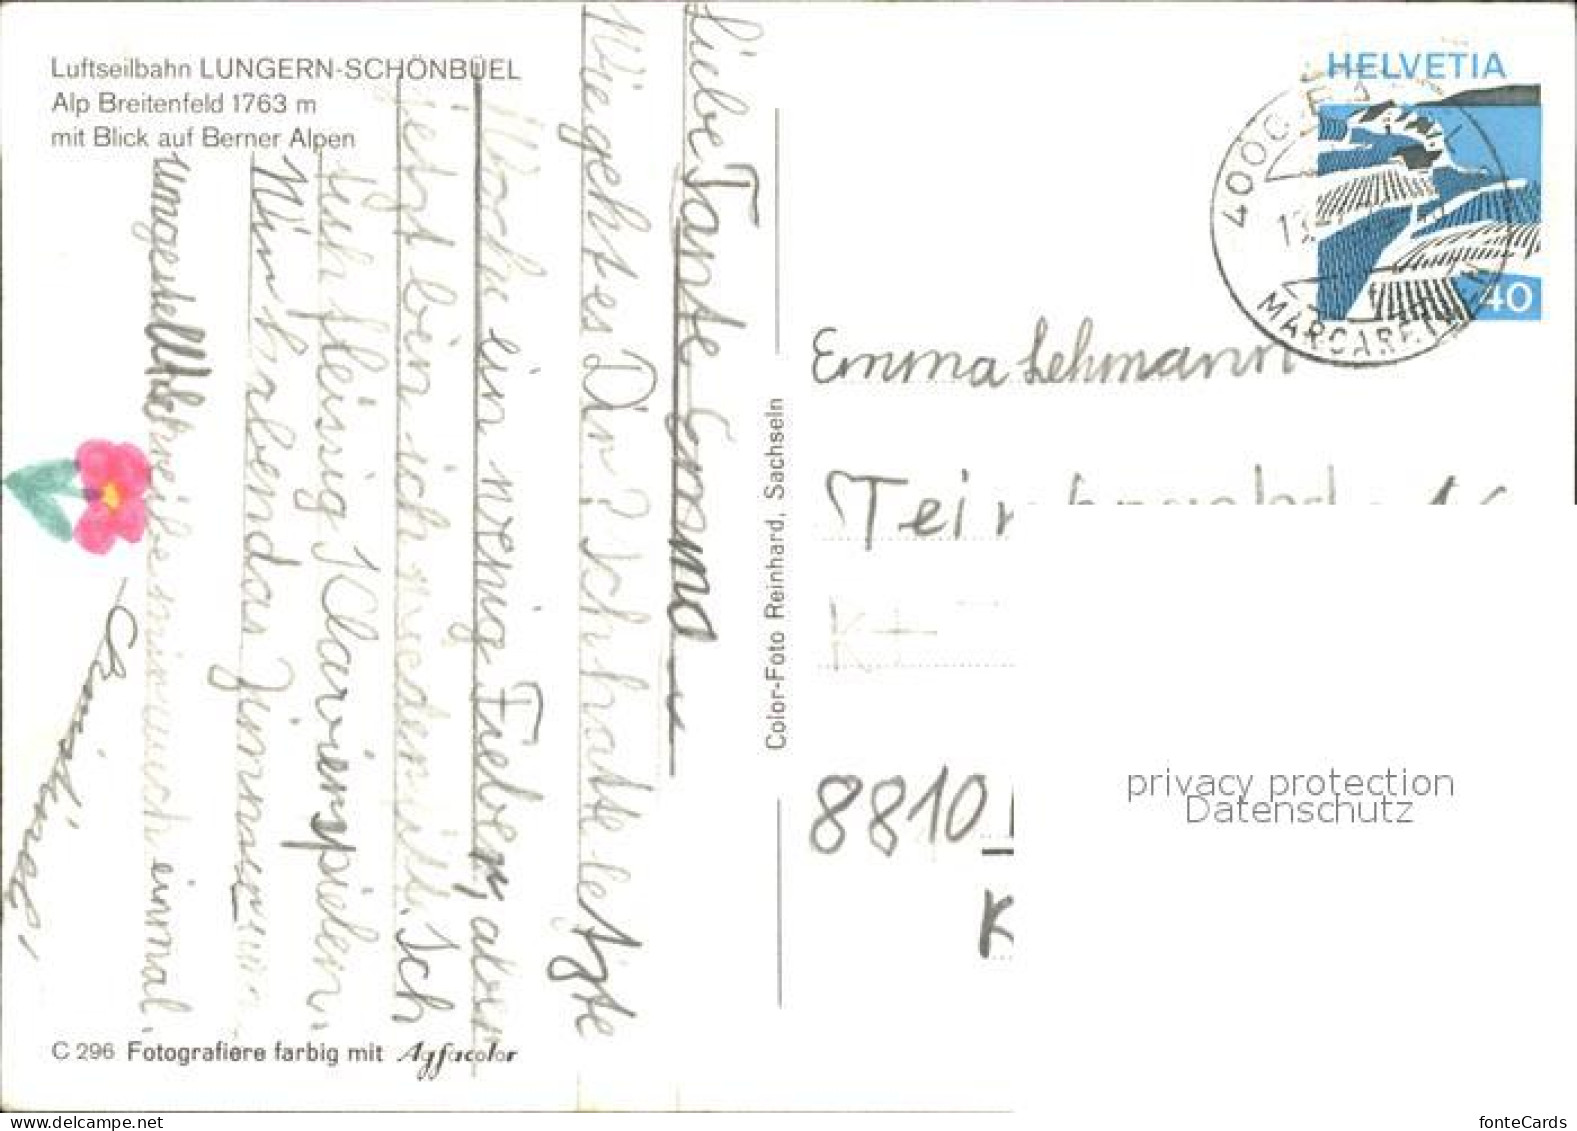 Luftseilbahn LUNGERN-SCHÖNBÜEL
Alp Breitenfeld 1763 m
mit Blick auf Berner Alpen
Liebe Tante Emma
Wie geht es Dir? Ich hatte letzte
Woche ein wenig Fieber, aber
jetzt bin ich wieder fit. Ich
tuh fleissig Klavierspielen.
Wir haben das Zimmer
umgestellt. Schreibe mir auch einmal.
C 296 Fotografiere farbig mit Agfacolor
Color-Foto Reinhard, Sachseln
HELVETIA
40
4000
MARGARETHEN
Emma Lehmann
8810
K
privacy protection
Datenschutz
fonteCards